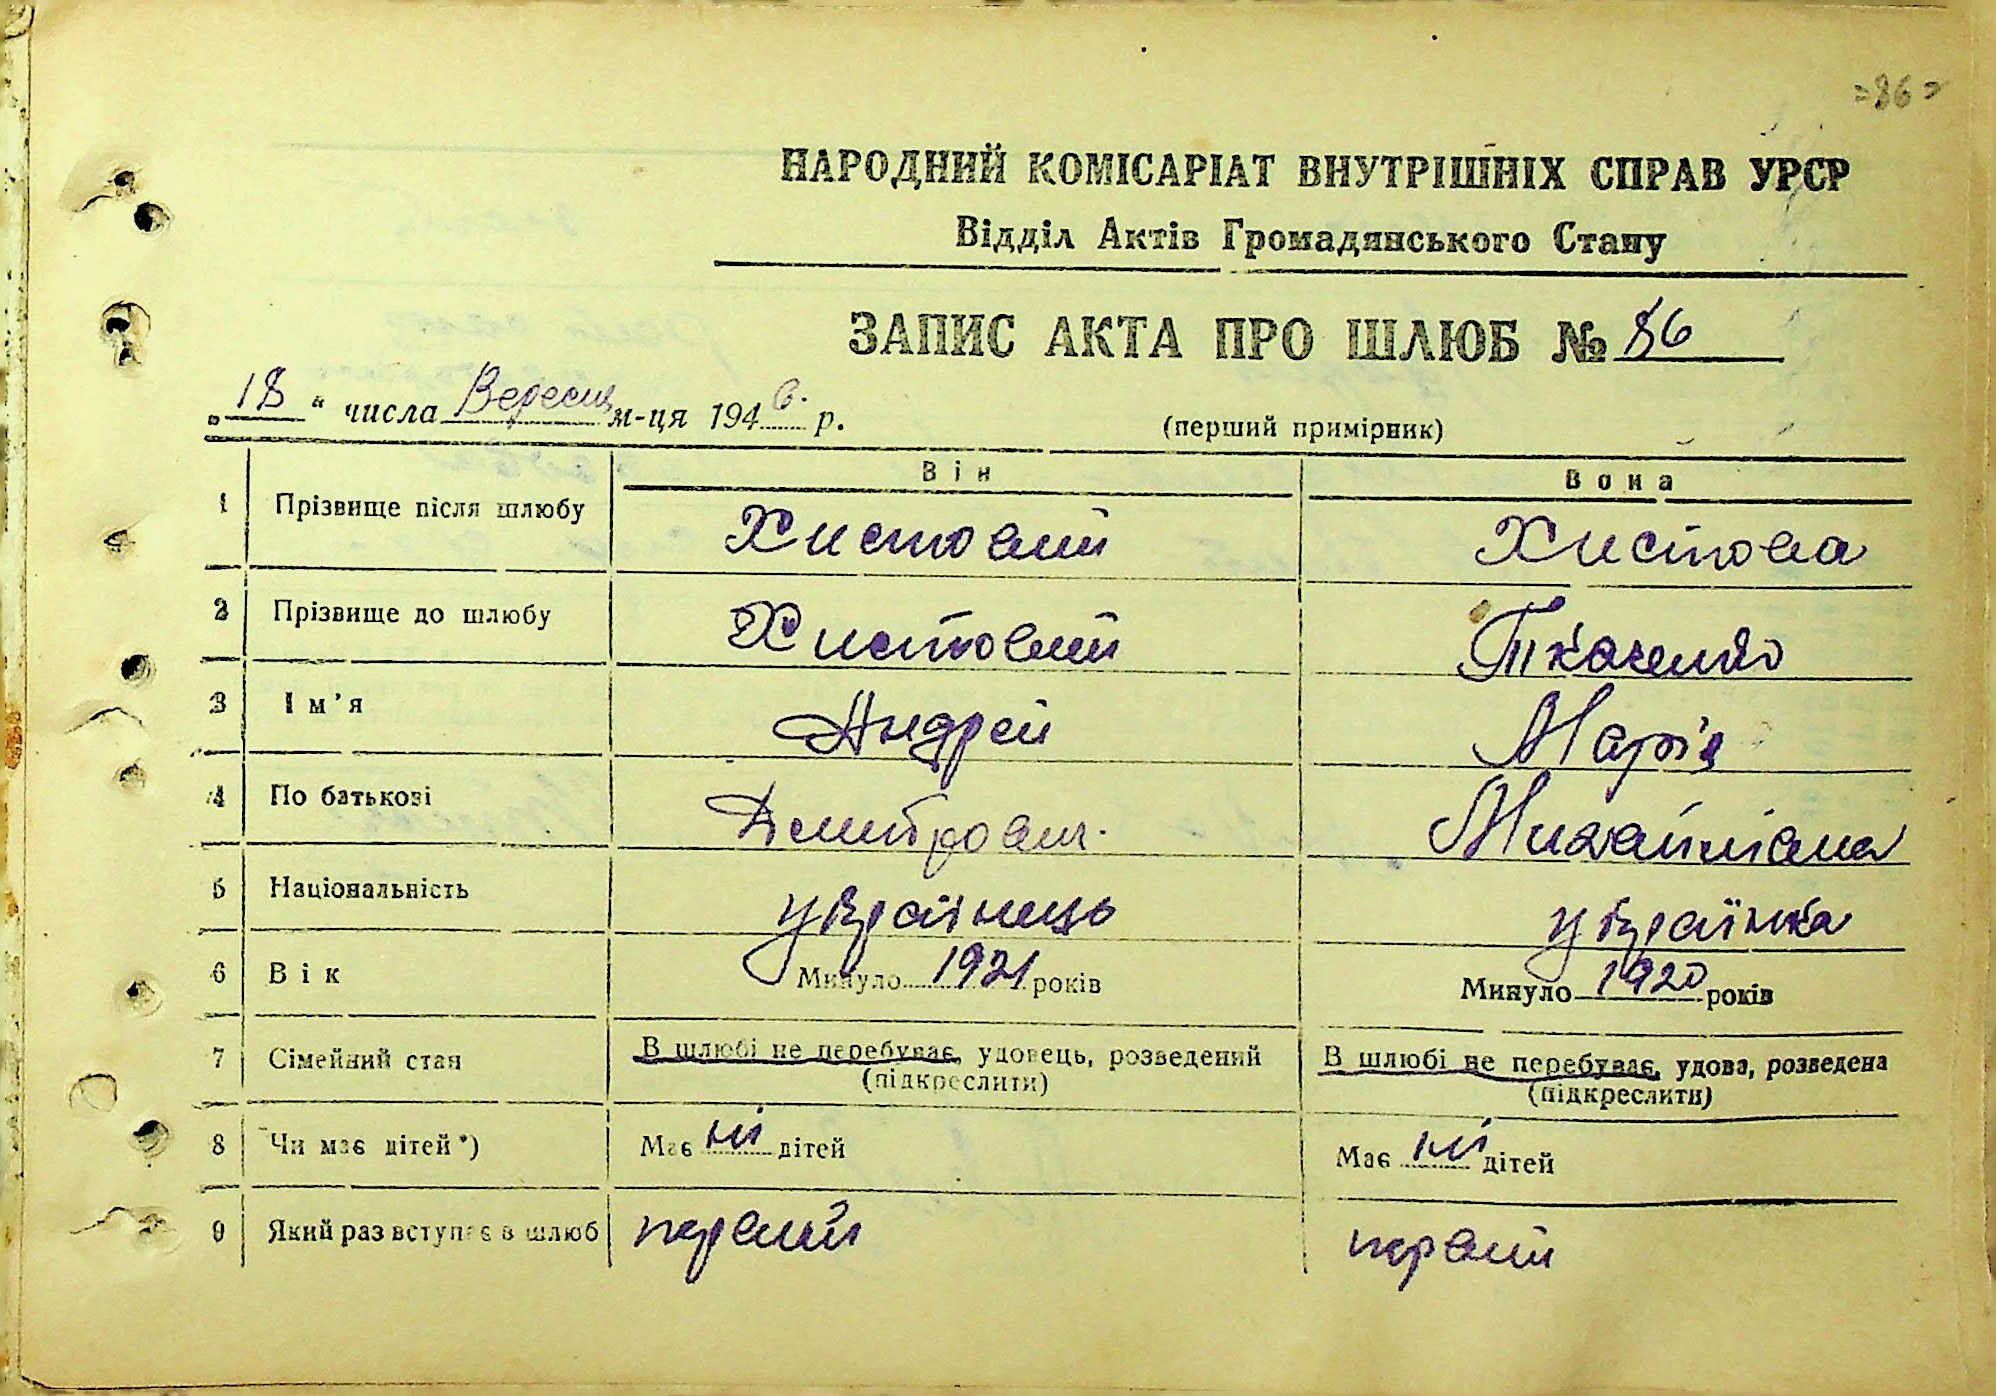 =86=
НАРОДНИЙ КОМІСАРІАТ ВНУТРІШНІХ СПРАВ УРСР
Відділ Актів Громадянського Стану
ЗАПИС АКТА ПРО ШЛЮБ № 86
„18“ числа Вересня м-ця 1946. р.
(перший примірник)
Він Вона
1 Прізвище після шлюбу Хистовий Хистова
2 Прізвище до шлюбу Хистовий Ткаченко
3 Ім'я Андрей Марія
4 По батькові Дмитрович. Михайлівна
5 Національність українець українка
6 Вік Минуло 1921 років Минуло 1920 років
7 Сімейний стан В шлюбі не перебуває, удовець, розведений В шлюбі не перебуває, удова, розведена
(підкреслити) (підкреслити)
8 Чи має дітей*) Має ні дітей Має ні дітей
9 Який раз вступає в шлюб первий первий